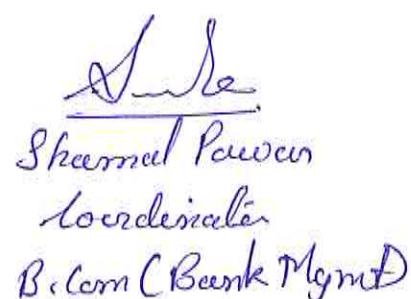 Shamal Pawar
Coordinator
B.Com (Bank Mgmt)